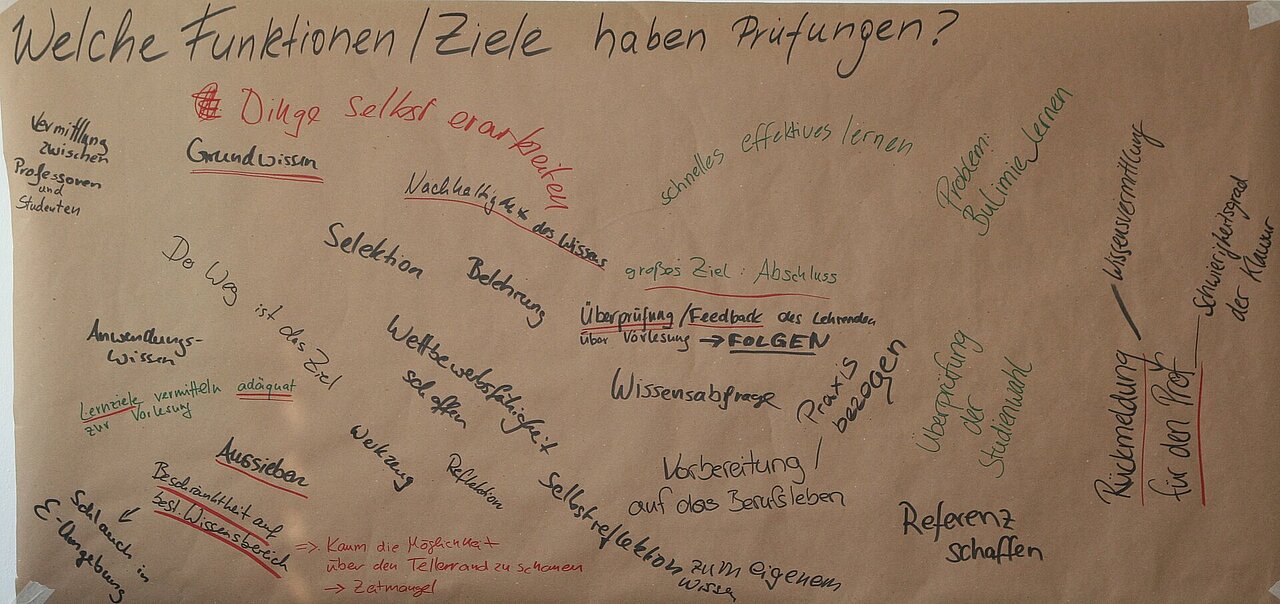 Welche Funktionen/Ziele haben Prüfungen?
Dinge selbst erarbeiten
Vermittlung
zwischen
Professoren
und
Studenten
Grundwissen
Nachhaltigkeit des Wissens
schnelles effektives lernen
Problem:
Bulimie lernen
Selektion
Belehrung
großes Ziel: Abschluss
Der Weg ist das Ziel
Überprüfung/Feedback des Lehrenden
über Vorlesung → FOLGEN
Anwendungs-
wissen
Wettbewerbsfähigkeit
schaffen
Wissensabfrage
Praxis
bezogen
Überprüfung
der
Studienwahl
Rückmeldung
für den Prof.
Wissensvermittlung
Schwierigkeitsgrad
der Klausur
Lernziele vermitteln adäquat
zur Vorlesung
Aussieben
Werkzeug
Reflektion
Vorbereitung/
auf das Berufsleben
Beschränktheit auf
best. Wissensbereich
in
E-Umgebung
=> Kaum die Möglichkeit
über den Tellerrand zu schauen
→ Zeitmangel
Selbstreflektion zum eigenem
Wissen
Referenz
schaffen